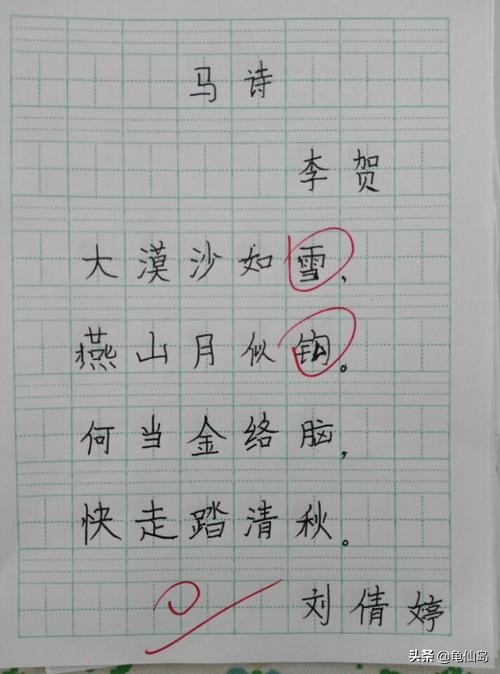 马诗
李贺
大漠沙如雪,
燕山月似钩。
何当金络脑,
快走踏清秋。
刘倩婷
头条@龟仙岛